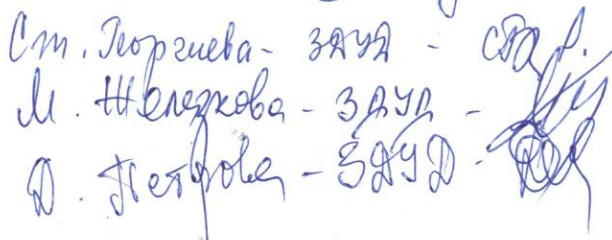 Ст. Георгиева - ЗДУД -
М. Желязкова - ЗДУД -
Д. Петрова - ЗДУД -